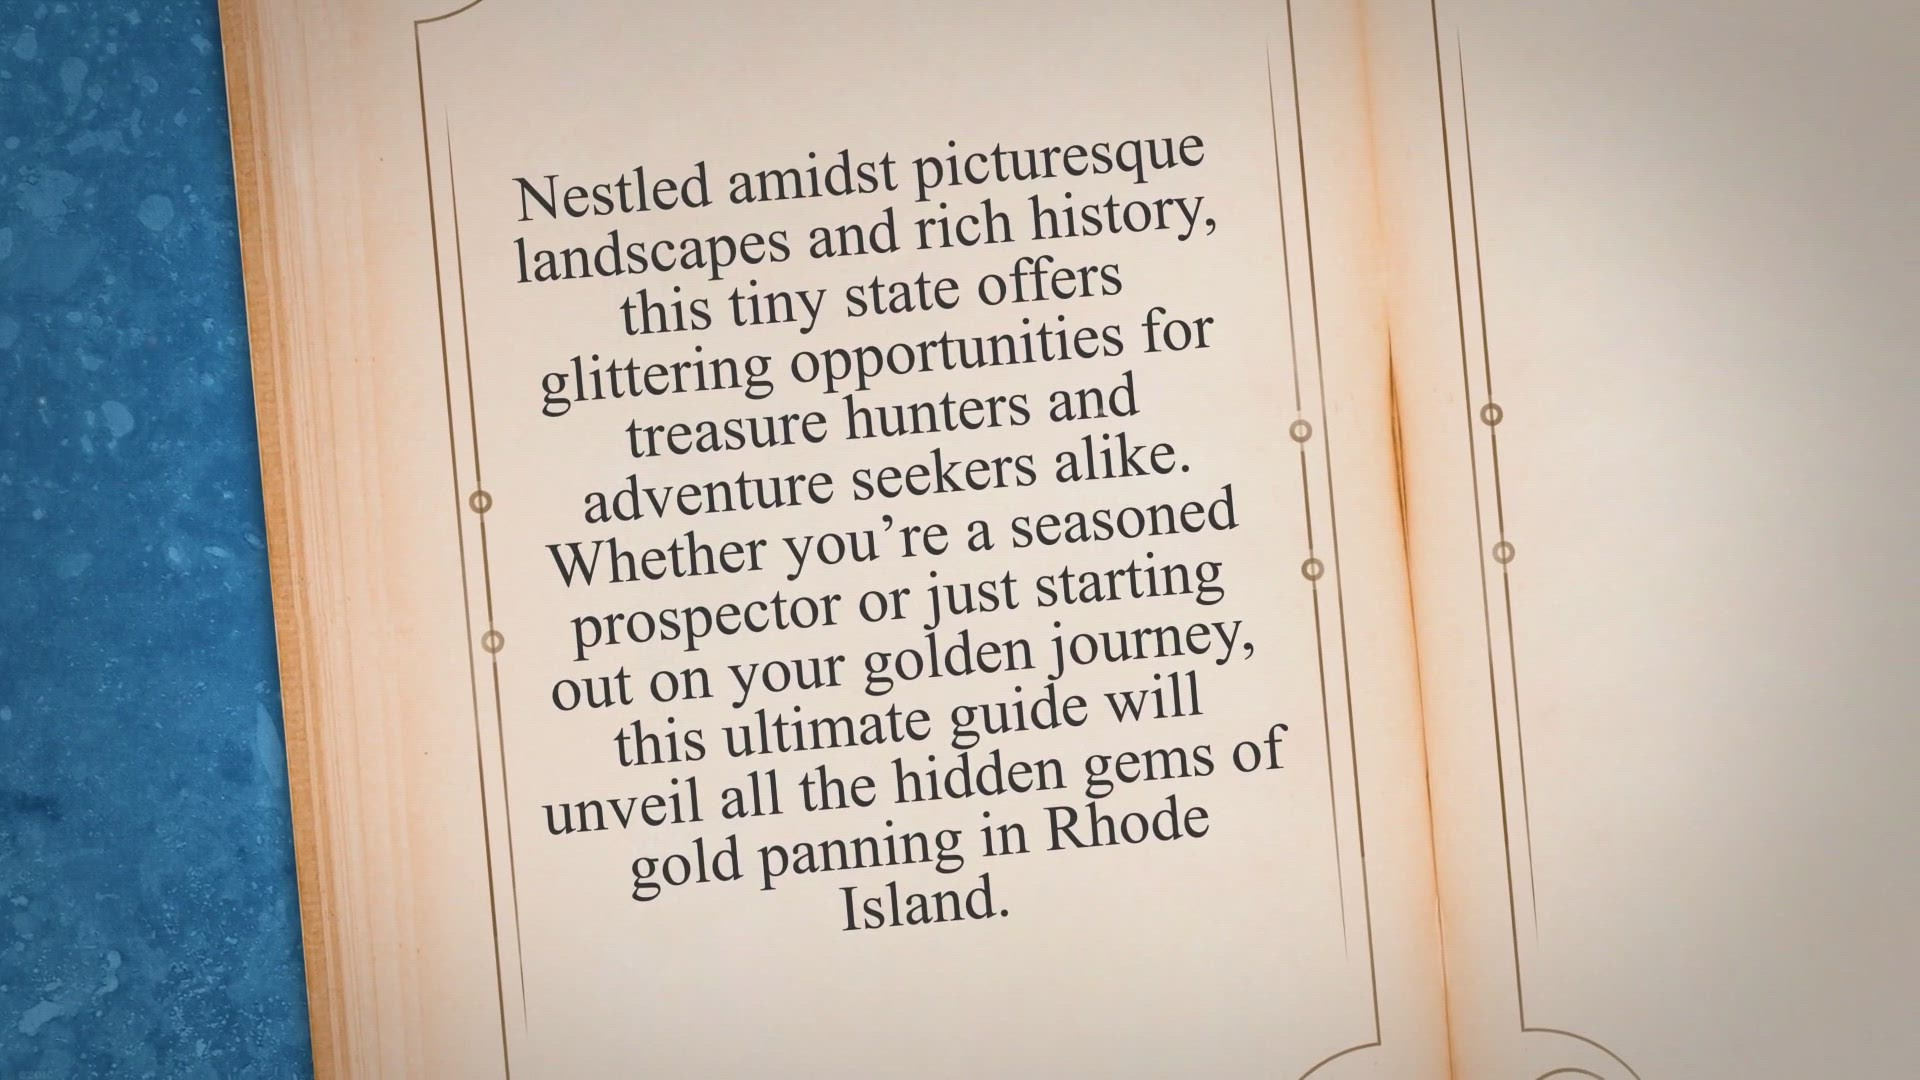 Nestled amidst picturesque
landscapes and rich history,
this tiny state offers
glittering opportunities for
treasure hunters and
adventure seekers alike.
Whether you’re a seasoned
prospector or just starting
out on your golden journey,
this ultimate guide will
unveil all the hidden gems of
gold panning in Rhode
Island.